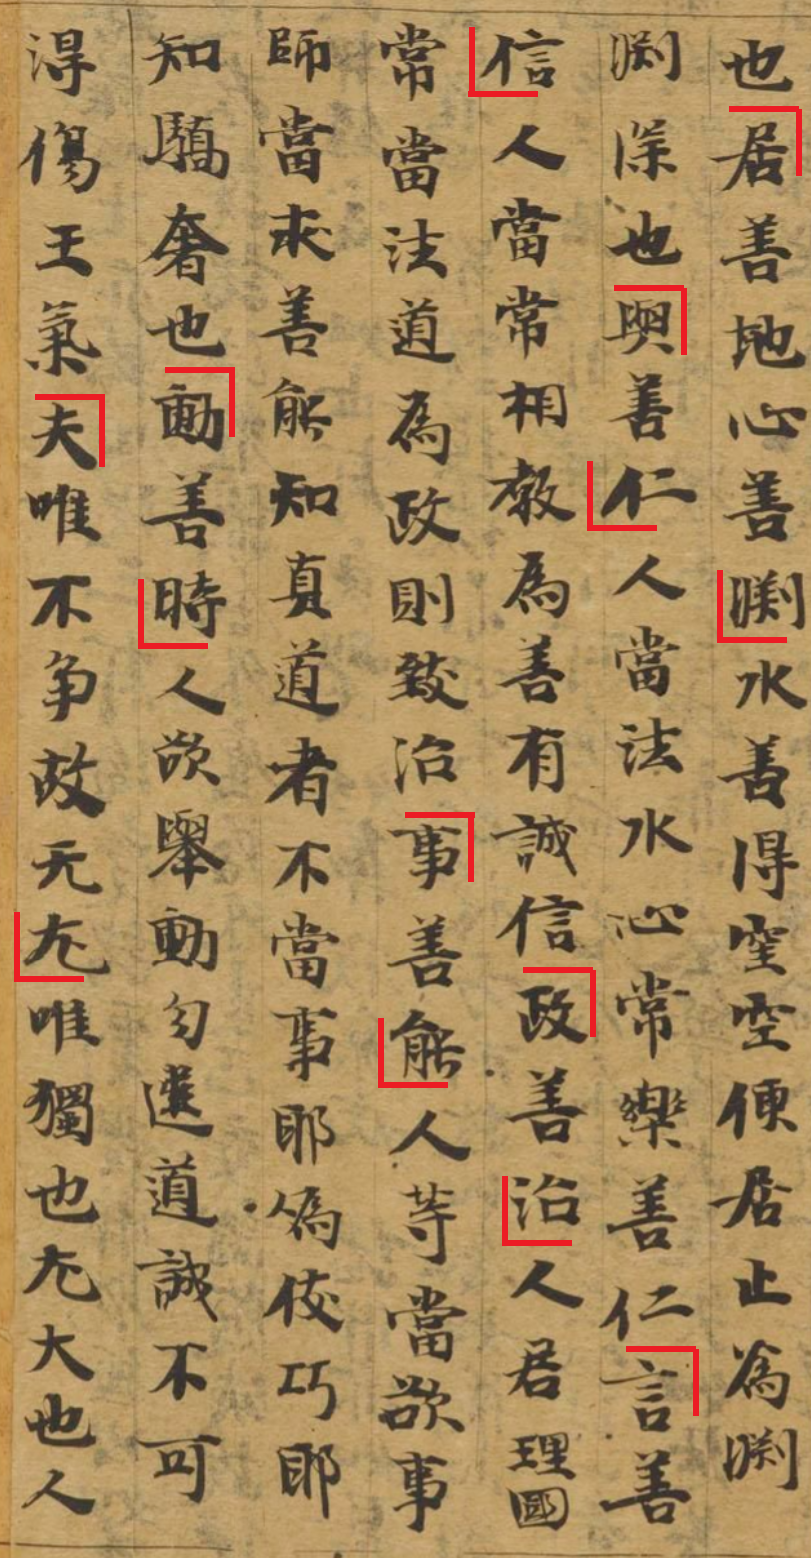 也居善地心善渕水善得空空便居止為渕
渕深也與善仁人當法水心常樂善仁言善
信人當常相教為善有誠信政善治人君理國
常當法道為政則致治事善能人等當欲事
師當求善能知真道者不當事耶偽伎巧耶
知驕奢也動善時人欲舉動勿違道誡不可
得傷王氣夫唯不争故无尤唯獨也尤大也人